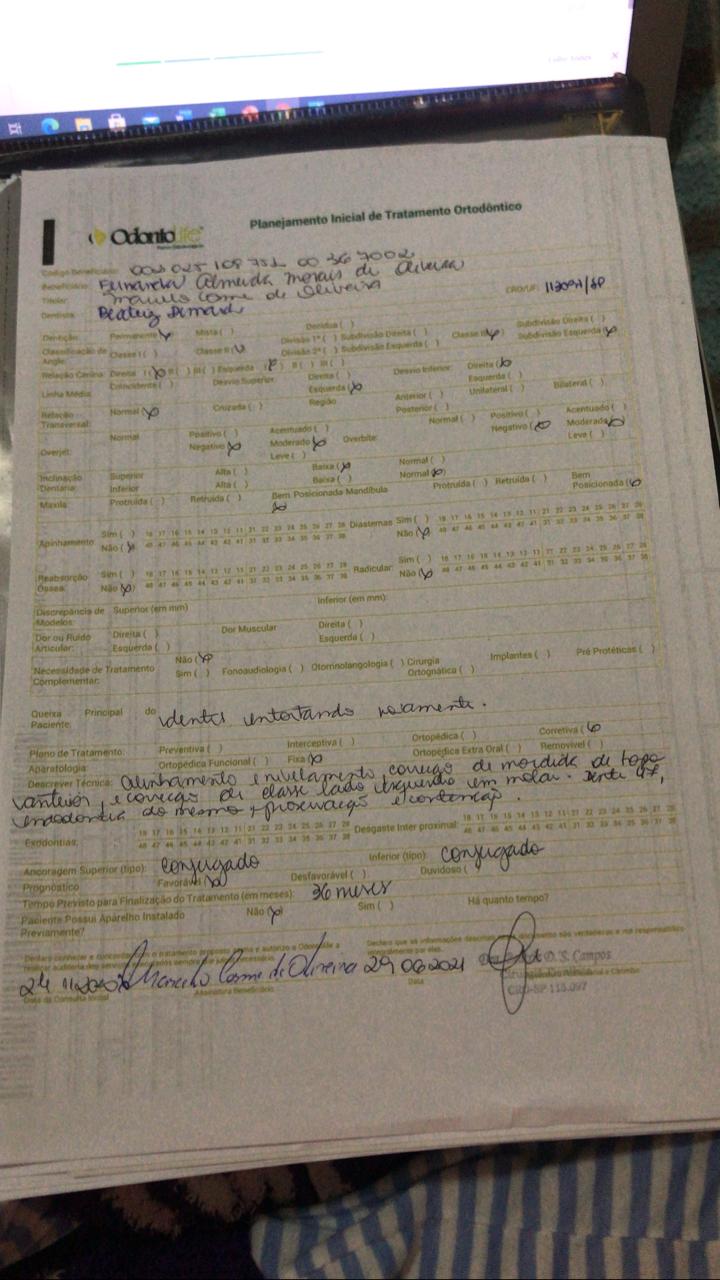 OdontoLife
Planejamento Inicial de Tratamento Ortodôntico
Código Beneficiário:
Beneficiário: Fernanda Almeida Morais de Oliveira
Titular: Marcelo Cosme de Oliveira CRO/UF:
Dentista: Beatriz
Dentição: Permanente Mista ( ) Decídua ( )
Classificação de Angle: Classe I ( ) Classe II Divisão 1ª ( ) Subdivisão Direita ( ) Divisão 2ª ( ) Subdivisão Esquerda ( ) Classe III Subdivisão Direita ( ) Subdivisão Esquerda
Relação Canina: Direita I II ( ) III ( ) Esquerda I II ( ) III ( )
Linha Média: Coincidente ( ) Desvio Superior: Direita ( ) Esquerda Desvio Inferior: Direita Esquerda ( )
Relação Transversal: Normal Cruzada ( ) Região Anterior ( ) Posterior ( ) Unilateral ( ) Bilateral ( )
Overjet: Normal Positivo ( ) Negativo Acentuado ( ) Moderado Leve ( ) Overbite: Normal ( ) Positivo ( ) Negativo Acentuado ( ) Moderado Leve ( )
Inclinação Dentária: Superior Alta ( ) Baixa Normal ( )
Inferior Alta ( ) Baixa ( ) Normal
Maxila: Protruída ( ) Retruída ( ) Bem Posicionada Mandíbula Protruída ( ) Retruída ( ) Bem Posicionada
Apinhamento: Sim ( ) 18 17 16 15 14 13 12 11 21 22 23 24 25 26 27 28 Diastemas: Sim ( ) 18 17 16 15 14 13 12 11 21 22 23 24 25 26 27 28
Não 48 47 46 45 44 43 42 41 31 32 33 34 35 36 37 38 Não 48 47 46 45 44 43 42 41 31 32 33 34 35 36 37 38
Reabsorção Óssea: Sim ( ) 18 17 16 15 14 13 12 11 21 22 23 24 25 26 27 28 Radicular: Sim ( ) 18 17 16 15 14 13 12 11 21 22 23 24 25 26 27 28
Não 48 47 46 45 44 43 42 41 31 32 33 34 35 36 37 38 Não 48 47 46 45 44 43 42 41 31 32 33 34 35 36 37 38
Discrepância de Modelos: Superior (em mm) Inferior (em mm):
Dor ou Ruído Articular: Direita ( ) Esquerda ( ) Dor Muscular Direita ( ) Esquerda ( )
Necessidade de Tratamento Complementar: Não Sim ( ) Fonoaudiologia ( ) Otorrinolangologia ( ) Cirurgia Ortognática ( ) Implantes ( ) Pré Protéticas ( )
Queixa Principal do Paciente: dentes entortando novamente.
Plano de Tratamento: Preventiva ( ) Interceptiva ( ) Ortopédica ( ) Corretiva
Aparatologia: Ortopédica Funcional ( ) Fixa Ortopédica Extra Oral ( ) Removível ( )
Descrever Técnica: Alinhamento e nivelamento, correção de mordida de topo
anterior, e correção de classe lado esquerdo em molar. Dente 47,
endodontia do mesmo, e contenção.
Exodontias: 18 17 16 15 14 13 12 11 21 22 23 24 25 26 27 28 Desgaste Inter proximal: 18 17 16 15 14 13 12 11 21 22 23 24 25 26 27 28
48 47 46 45 44 43 42 41 31 32 33 34 35 36 37 38 48 47 46 45 44 43 42 41 31 32 33 34 35 36 37 38
Ancoragem Superior (tipo): conjugado Inferior (tipo): conjugado
Prognóstico Favorável Desfavorável ( ) Duvidoso ( )
Tempo Previsto para Finalização do Tratamento (em meses): 36 meses
Paciente Possui Aparelho Instalado Previamente? Não Sim ( ) Há quanto tempo?
Marcelo Cosme de Oliveira 29 06 2021 D. S. Campos
Data da Consulta Inicial Assinatura Beneficiário Data